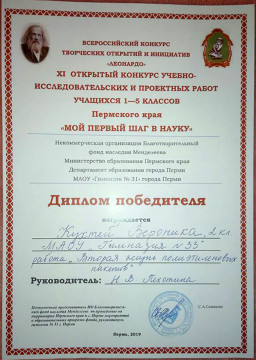 ВСЕРОССИЙСКИЙ КОНКУРС
ТВОРЧЕСКИХ ОТКРЫТИЙ И ИНИЦИАТИВ
«ЛЕОНАРДО»
XI ОТКРЫТЫЙ КОНКУРС УЧЕБНО-
ИССЛЕДОВАТЕЛЬСКИХ И ПРОЕКТНЫХ РАБОТ
УЧАЩИХСЯ 1—5 КЛАССОВ
Пермского края
«МОЙ ПЕРВЫЙ ШАГ В НАУКУ»
Некоммерческая организация Благотворительный
фонд наследия Менделеева
Министерство образования Пермского края
Департамент образования города Перми
МАОУ «Гимназия № 31» города Перми
Диплом победителя
награждается
Вероника, 2 кл
МАОУ "Гимназия № 33"
работа "Вторая жизнь полиэтиленовых
пакетов"
Руководитель: Н.В.
Пермь, 2019